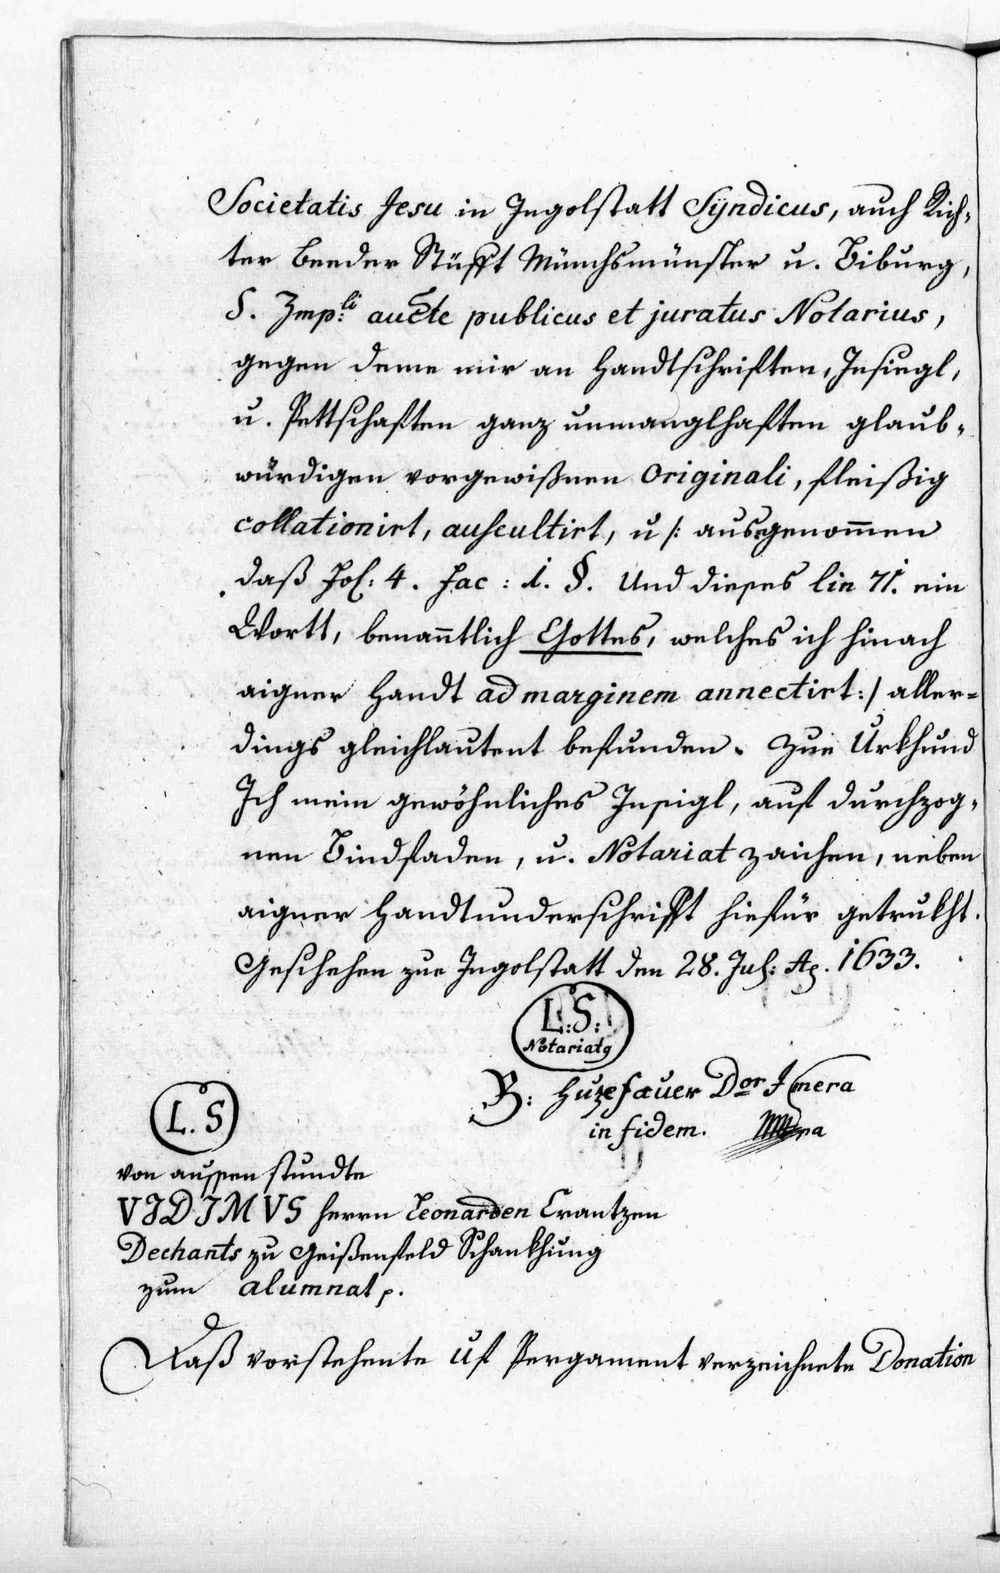 Societatis Jesu in Ingolstatt Sÿndicus, auch Rich-
ter beeder Stüfft Münchsmünster u. Biburg,
S. Imp:li aucte publicus et juratus Notarius,
gegen deme mir an Handtschriften, Insiegl,
u. Pettschaften ganz unmanglhaften glaub-
würdigen vorgewißnen Originali, fleißig
collationirt, auscultirt, u /: ausgenommen
daß Fol: 4. fac: 1. §. Und dieses lin 71. ein
Wortt, benanntlich Gottes, welches ich hinach
aigner Handt ad marginem annectirt :/ aller=
dings gleichlautent befunden. Zue Urkhund
Ich mein gewöhnliches Insigl, auf durchzog-
nen Bindfaden, u. Notariat zaichen, neben
aigner Handtunderschrifft hiefür getrukht.
Geschehen zue Ingolstatt den 28. Jul: Ao. 1633.
L:S:
Notariatg
B: Huze Dor
in fidem.
L. S
von aussen stundte
VIDIMVS Herrn Leonarden Crantzen
Dechants zu Geißenfeld Schankhung
zum alumnat p.
Daß vorstehente uf Pergament verzeichnete Donation